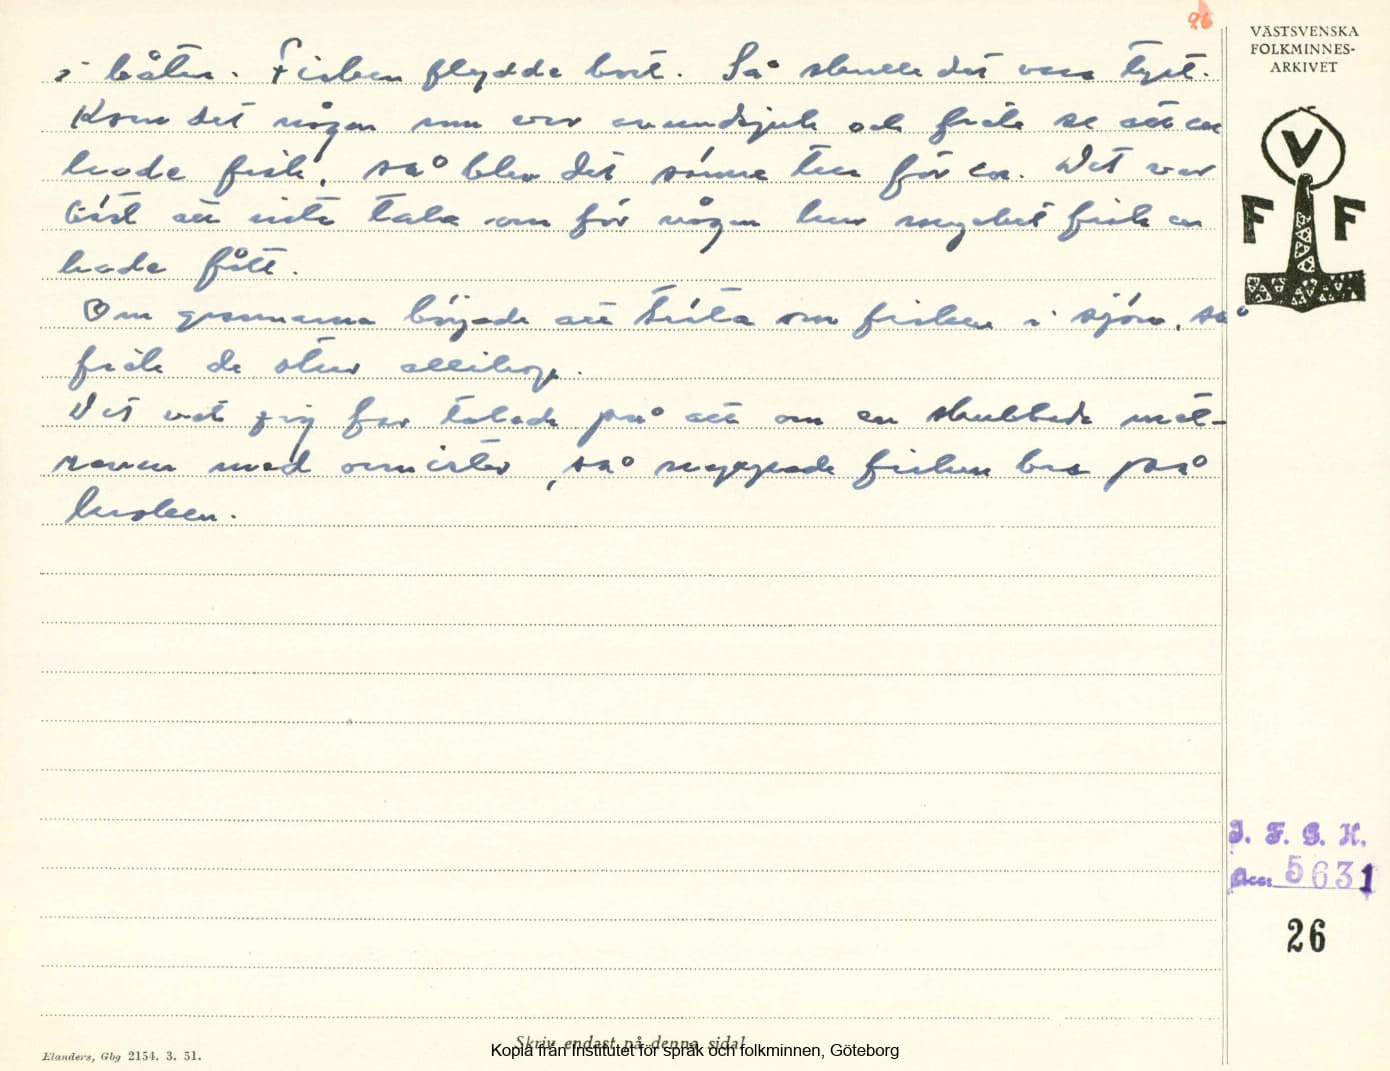 26
VÄSTSVENSKA
FOLKMINNES-
ARKIVET
i båten. Fisken flydde bort. Så skulle det vara tyst.
Kom det någon som var avundsjuk och fick se att en
hade fisk, så blev det sämre ten för en. Det var
bäst att inte tala om för någon hur mycket fisk en
hade fått.
Om grannarna började att träta om fisken i sjön, så
fick de stur allihop.
Det vet jag far talade på att om en skubbade mét-
reven med ormister, så nappade fisken bra på
kroken.
V
F F
I. F. G. H.
Acc: 5631
26
Skriv endast på denna sida!
Elanders, Gbg 2154. 3. 51.
Kopia från Institutet för språk och folkminnen, Göteborg